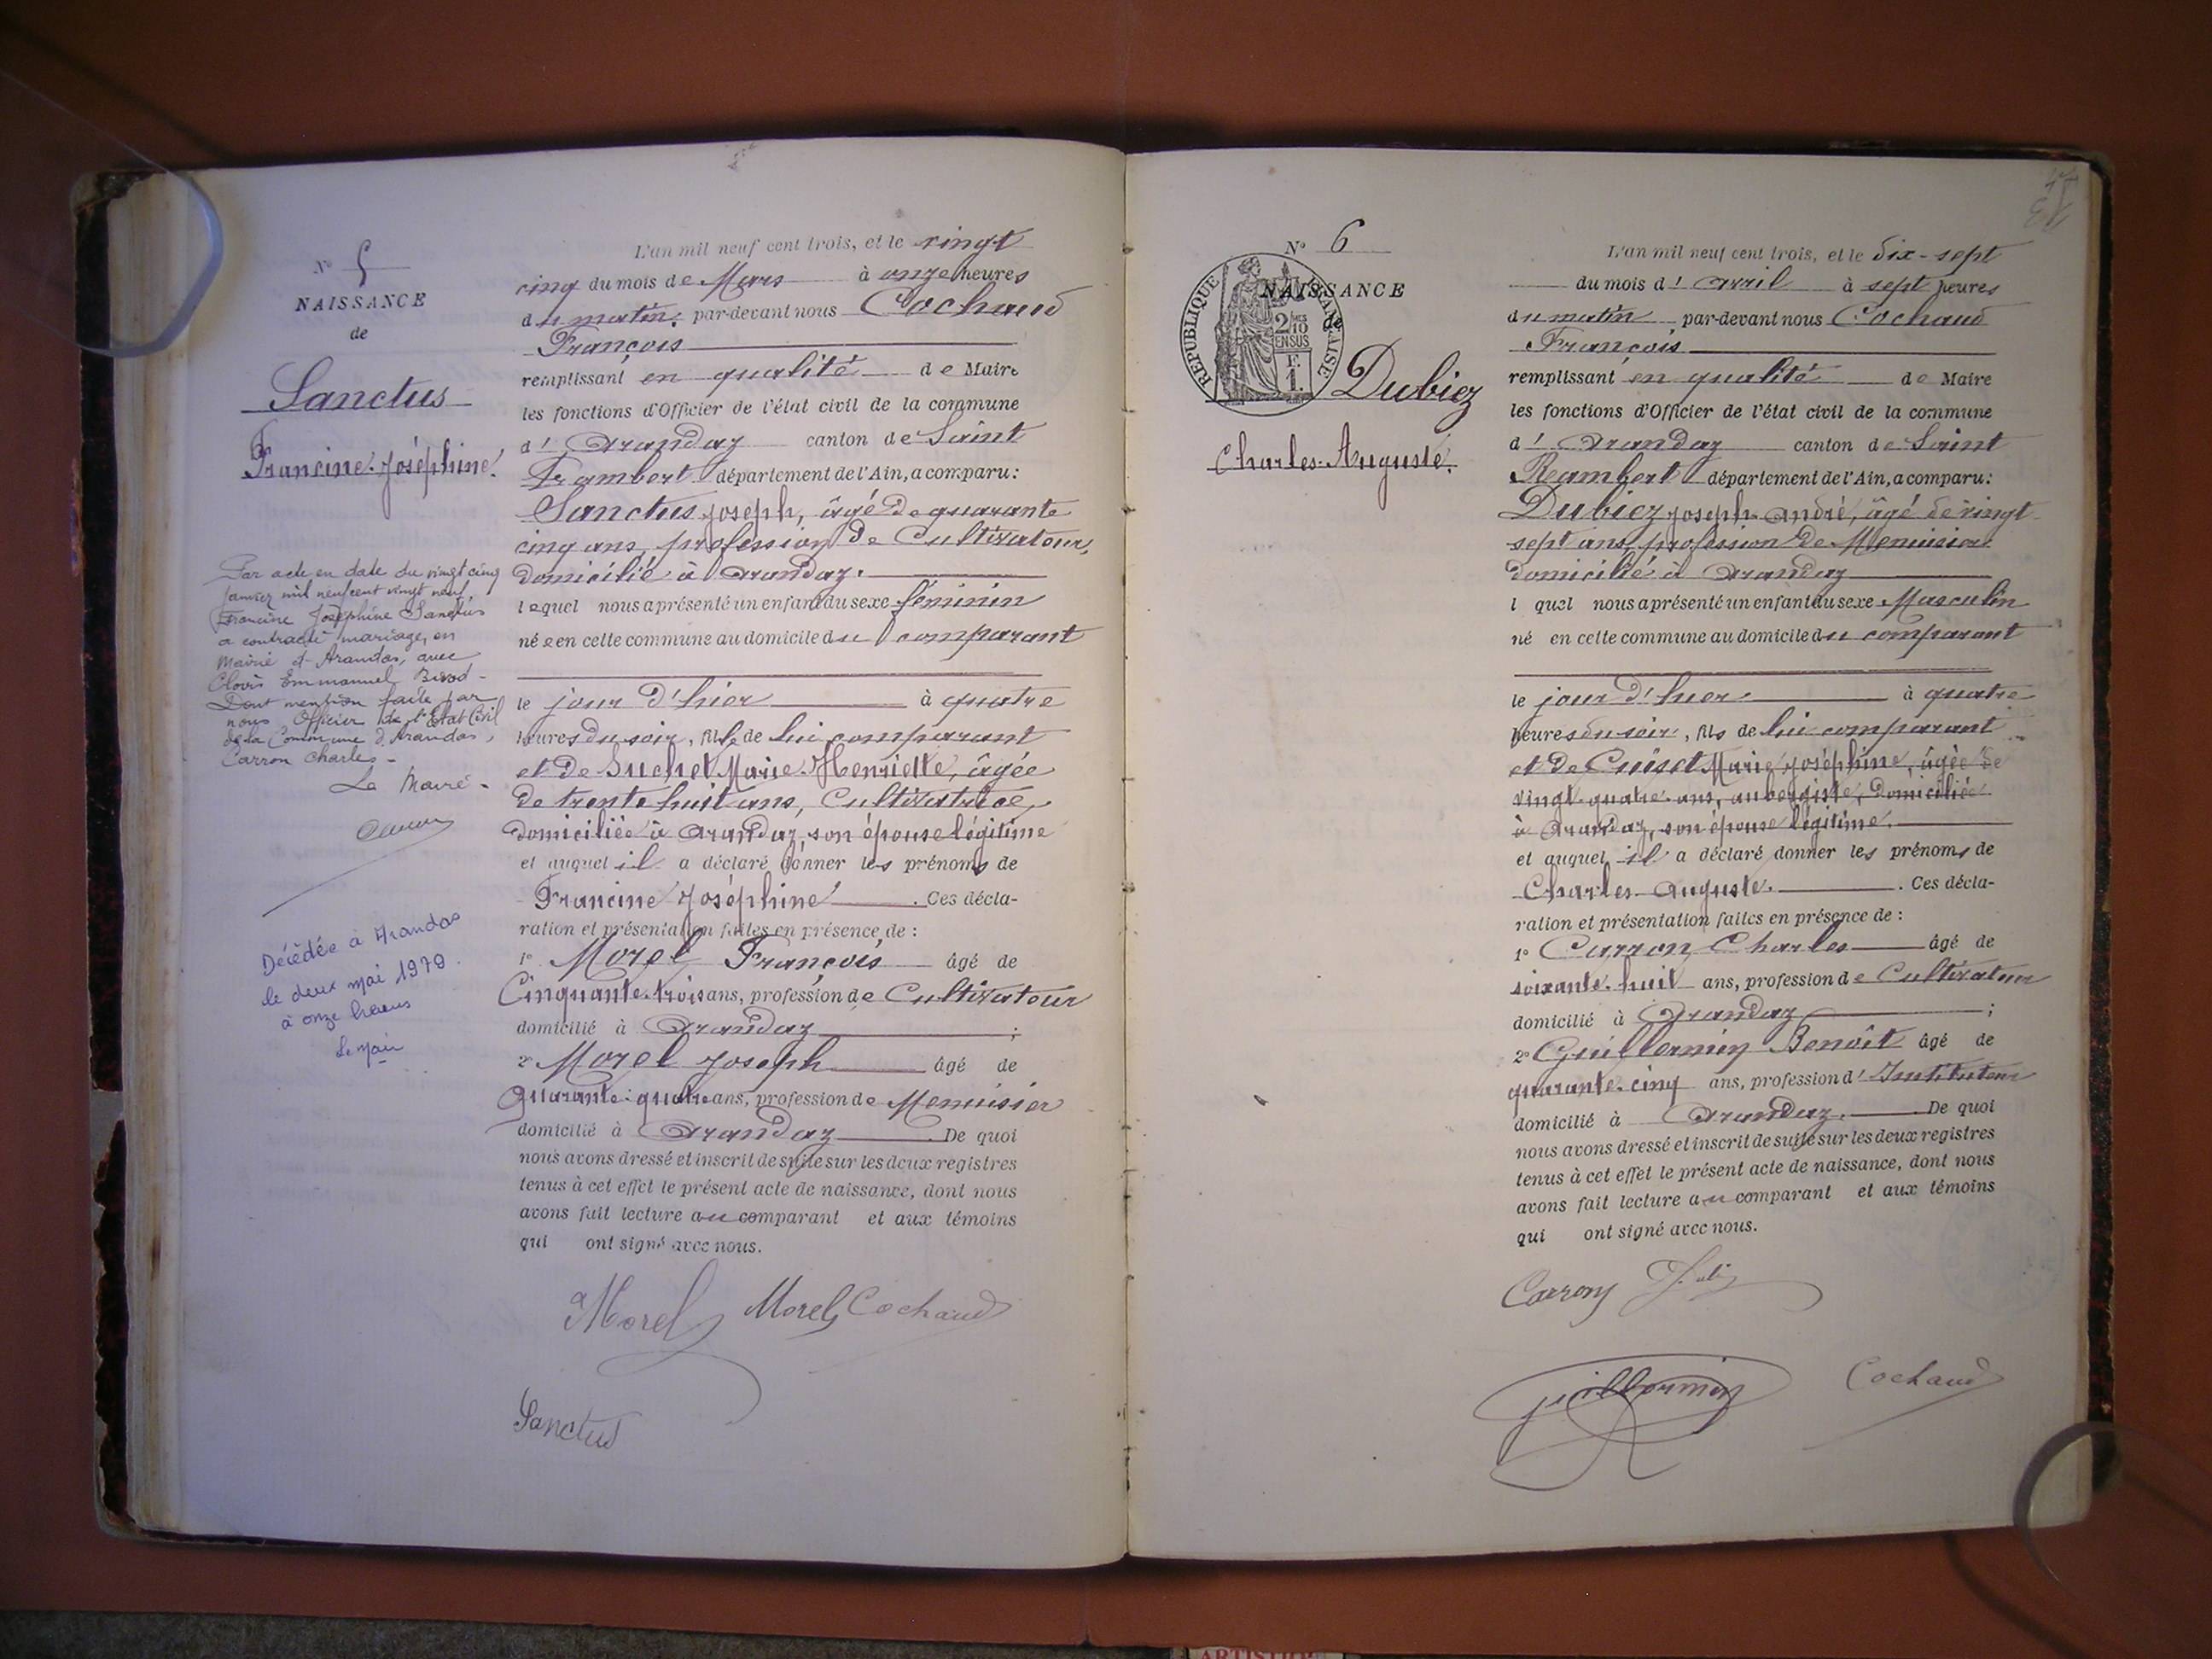 N° 5
NAISSANCE
de
Sanctus
Francine Joséphine.
Par acte en date du vingt cinq
janvier mil neuf cent vingt neuf,
Francine Joséphine Sanctus
a contracté mariage, en
Mairie d'Arandas, avec
Clovis Emmanuel
Dont mention faite par
nous Officier de l'Etat Civil
de la Commune d'Arandas,
Carron Charles -
Le Maire -
Décédée à Arandas
le deux mai 1979
à onze heures
Le Maire
L'an mil neuf cent trois, et le vingt
cinq du mois de Mars à onze heures
du matin, par-devant nous Cochaud
François
remplissant en qualité de Maire
les fonctions d'Officier de l'état civil de la commune
d' Arandaz canton de Saint
Rambert département de l'Ain, a comparu:
Sanctus Joseph, âgé de quarante
cinq ans, profession de Cultivateur,
domicilié à Arandaz.
lequel nous a présenté un enfant du sexe féminin
née en cette commune au domicile du comparant
le jour d'hier à quatre
heures du soir, fille de lui comparant
et de Suchet Marie Henriette, âgée
de trente huit ans, Cultivatrice,
domiciliée à Arandaz, son épouse légitime
et auquel il a déclaré donner les prénoms de
Francine Joséphine. Ces décla-
ration et présentation faites en présence de :
1° Morel François âgé de
Cinquante-trois ans, profession de Cultivateur
domicilié à Arandaz ;
2° Morel Joseph âgé de
Quarante-quatre ans, profession de Menuisier
domicilié à Arandaz. De quoi
nous avons dressé et inscrit de suite sur les deux registres
tenus à cet effet le présent acte de naissance, dont nous
avons fait lecture au comparant et aux témoins
qui ont signé avec nous.
Morel Morel Cochaud
Sanctus
N° 6
NAISSANCE
de
RÉPUBLIQUE FRANÇAISE
2/10 EN SUS
F.
1.
Dubiez
Charles-Auguste.
L'an mil neuf cent trois, et le dix-sept
du mois d' avril à sept heures
du matin par-devant nous Cochaud
François
remplissant en qualité de Maire
les fonctions d'Officier de l'état civil de la commune
d' Arandaz canton de Saint
Rambert département de l'Ain, a comparu:
Dubiez Joseph-André, âgé de vingt
sept ans, profession de Menuisier
domicilié à Arandaz
l quel nous a présenté un enfant du sexe Masculin
né en cette commune au domicile du comparant
le jour d'hier à quatre
heures du soir, fils de lui comparant
et de Cuiset Marie Joséphine, âgée de
vingt-quatre ans, aubergiste, domiciliée
à Arandaz, son épouse légitime.
et auquel il a déclaré donner les prénoms de
Charles-Auguste. Ces décla-
ration et présentation faites en présence de :
1° Carron Charles âgé de
soixante-huit ans, profession de Cultivateur
domicilié à Arandaz ;
2° Guillermin Benoît âgé de
quarante-cinq ans, profession d' Instituteur
domicilié à Arandaz. De quoi
nous avons dressé et inscrit de suite sur les deux registres
tenus à cet effet le présent acte de naissance, dont nous
avons fait lecture au comparant et aux témoins
qui ont signé avec nous.
Carron
Guillermin Cochaud